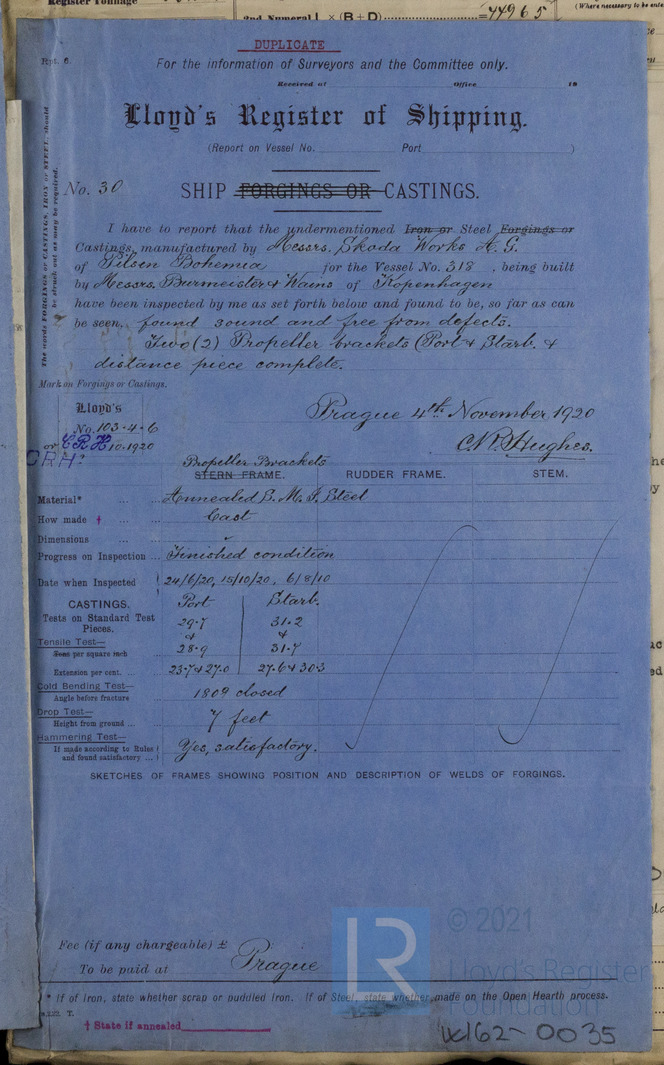 Register Tonnage
2nd Numeral L × (B + D) =44965
(Where necessary to be ente
DUPLICATE
Rpt. 6.
For the information of Surveyors and the Committee only.
Received at Office 18
Lloyd's Register of Shipping.
(Report on Vessel No. Port )
The words FORGINGS or CASTINGS, IRON or STEEL, should
be struck out as may be required.
No. 30
SHIP FORGINGS OR CASTINGS.
I have to report that the undermentioned Iron or Steel Forgings or
Castings, manufactured by Messrs. Skoda Works A. G.
of Pilsen Bohemia for the Vessel No. 318 , being built
by Messrs. Burmeister & Wains of Kopenhagen
have been inspected by me as set forth below and found to be, so far as can
be seen, found sound and free from defects.
Two (2) Propeller brackets (Port & Starb. &
distance piece complete.
Mark on Forgings or Castings.
Lloyd's
No. 103·4·6
or CRH 10·1920
CRH?
Prague 4th November, 1920
C.R. Hughes.
Propeller Brackets
STERN FRAME. RUDDER FRAME. STEM.
Material* ... ... Annealed S. M. S. Steel
How made † ... ... Cast
Dimensions ... ...
Progress on Inspection ... Finished condition
Date when Inspected 24/6/20, 15/10/20, 6/8/10
CASTINGS. Port Starb.
Tests on Standard Test
Pieces. 29·7 31·2
Tensile Test— & &
Tons per square inch 28·9 31·7
Extension per cent. ... 23·7 & 27·0 27·6 & 30·3
Cold Bending Test—
Angle before fracture 180º closed
Drop Test—
Height from ground ... 7 feet
Hammering Test—
If made according to Rules
and found satisfactory ... Yes, satisfactory.
SKETCHES OF FRAMES SHOWING POSITION AND DESCRIPTION OF WELDS OF FORGINGS.
Fee (if any chargeable) £
To be paid at Prague
LR
© 2021
Lloyd's Register
Foundation
* If of Iron, state whether scrap or puddled Iron. If of Steel, state whether made on the Open Hearth process.
† State if annealed
W162-0035